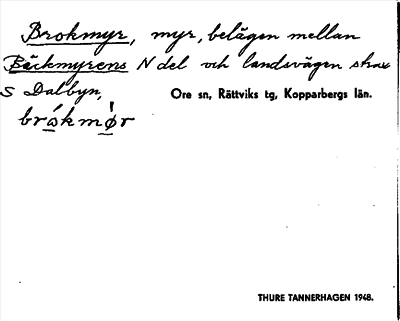 Brokmyr, myr, belägen mellan
Bäckmyrens N del och landsvägen strax
S Dalbyn,
Ore sn, Rättviks tg, Kopparbergs län.
brókmǿr
THURE TANNERHAGEN 1948.